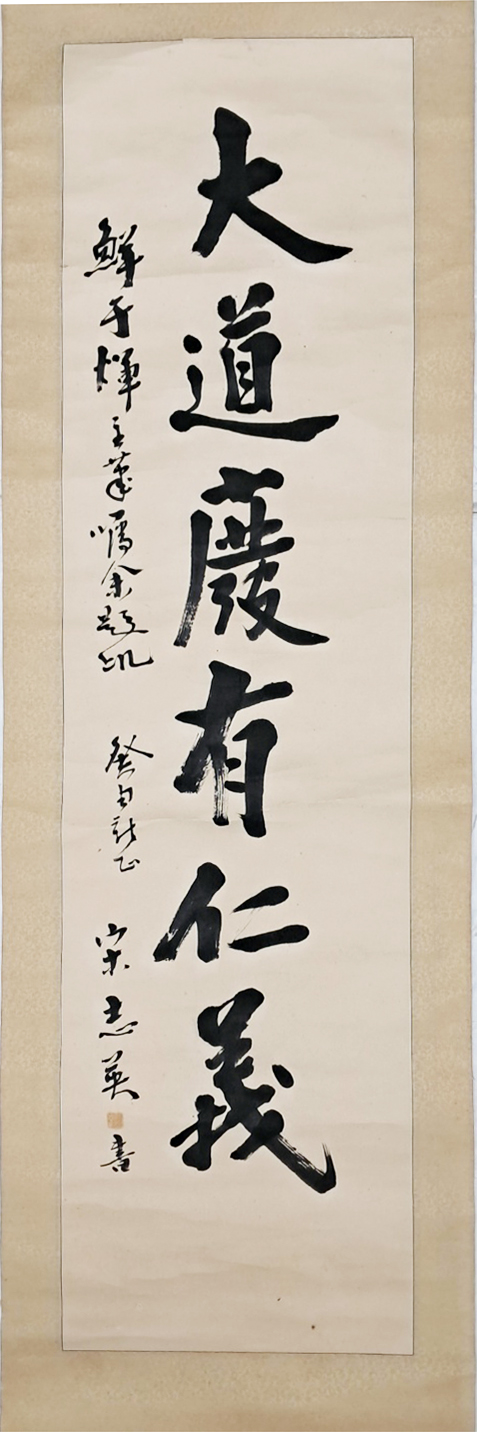 大道廢有仁義
鮮于煇主筆囑余題此 癸丑新正 宋志英書